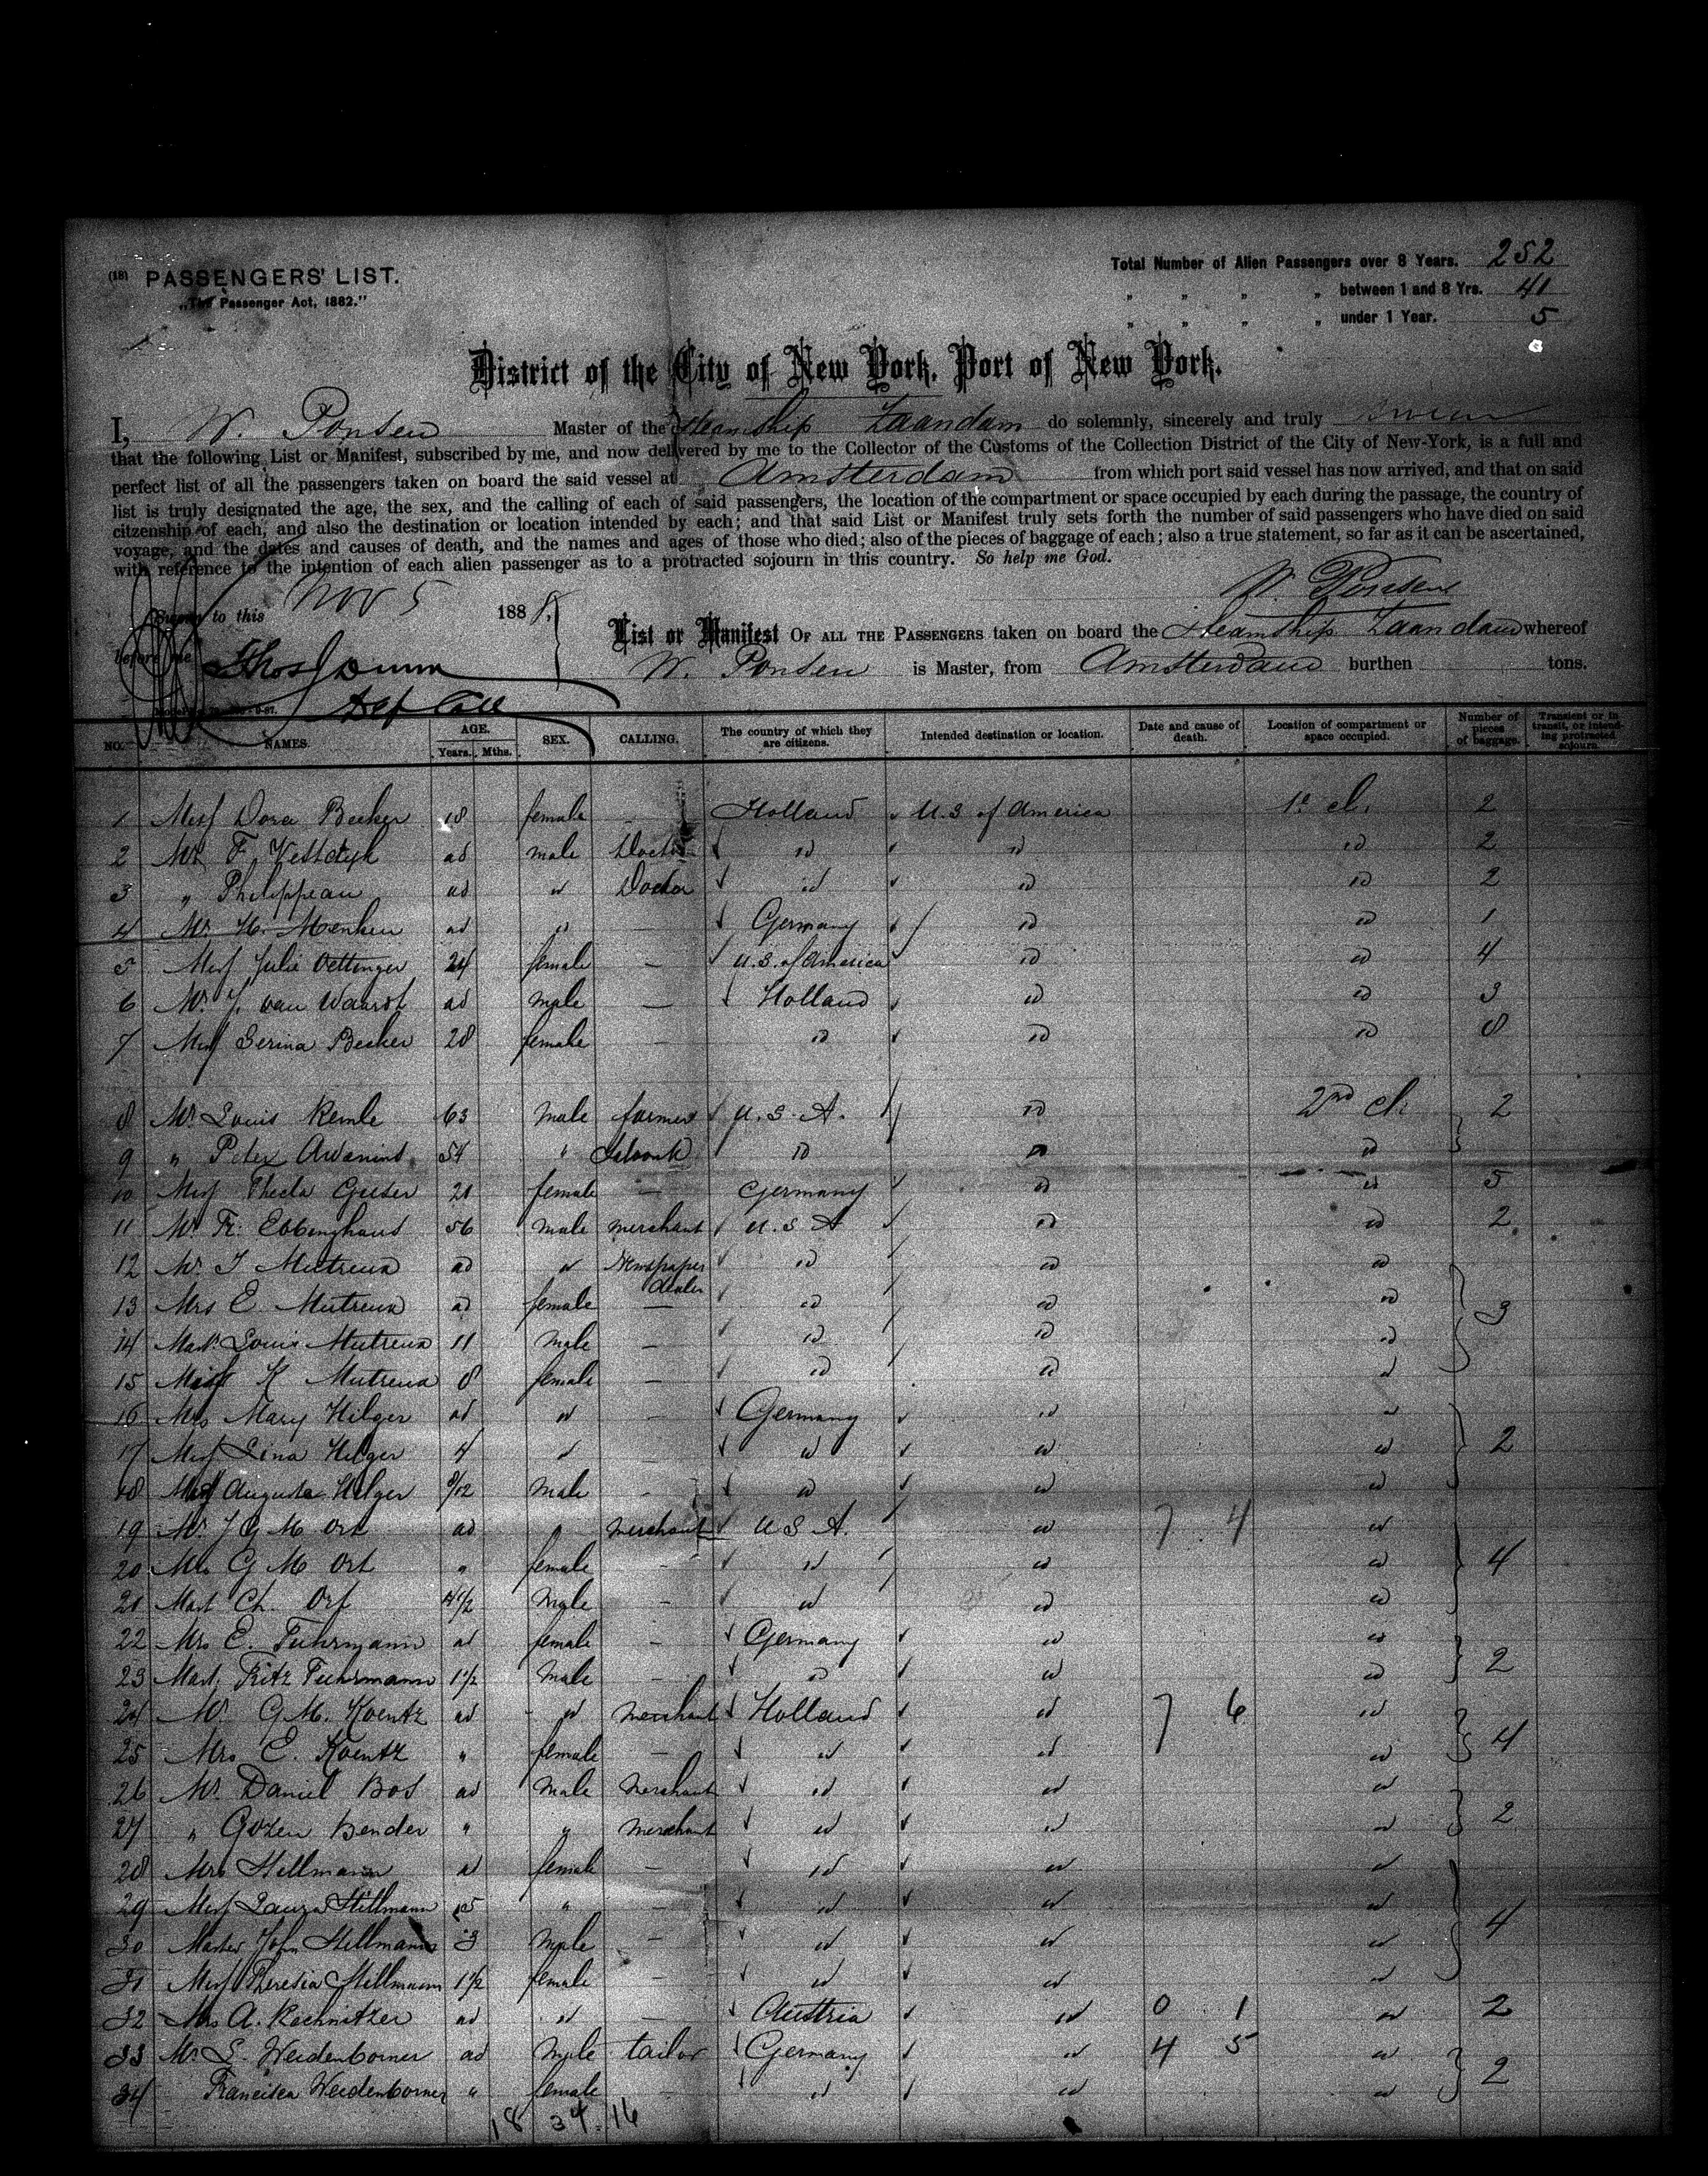 (18) PASSENGERS' LIST.
„The Passenger Act, 1882."
Total Number of Alien Passengers over 8 Years. 252
„ „ „ „ between 1 and 8 Yrs. 41
„ „ „ „ under 1 Year. 5
District of the City of New York, Port of New York.
I, W. Ponsen Master of the Steamship Zaandam do solemnly, sincerely and truly swear
that the following List or Manifest, subscribed by me, and now delivered by me to the Collector of the Customs of the Collection District of the City of New-York, is a full and
perfect list of all the passengers taken on board the said vessel at Amsterdam from which port said vessel has now arrived, and that on said
list is truly designated the age, the sex, and the calling of each of said passengers, the location of the compartment or space occupied by each during the passage, the country of
citzenship of each, and also the destination or location intended by each; and that said List or Manifest truly sets forth the number of said passengers who have died on said
voyage, and the dates and causes of death, and the names and ages of those who died; also of the pieces of baggage of each; also a true statement, so far as it can be ascertained,
with reference to the intention of each alien passenger as to a protracted sojourn in this country. So help me God.
W. Ponsen
Sworn to this Nov 5 1888.
before me
List or Manifest OF ALL THE PASSENGERS taken on board the Steamship Zaandam whereof
W. Ponsen is Master, from Amsterdam burthen tons.
NO. NAMES. AGE. Years. Mths. SEX. CALLING. The country of which they are citizens. Intended destination or location. Date and cause of death. Location of compartment or space occupied. Number of pieces of baggage. Transient or in transit, or intending protracted sojourn.
1 Miss Dora Becker 18 female — Holland U.S of America 1e cl. 2
2 Mr F. Vestdyk ad male Doctor id id id 2
3 „ Philippeau ad id Doctor id id id 2
4 Mr. H. Menken ad id — Germany id id 1
5 Miss Julie Oettinger 24 female — U.S. of America id id 4
6 Mr. J. van Waardt ad male — Holland id id 3
7 Miss Serina Becker 28 female — id id id 8
8 Mr Louis Remle 63 male farmer U.S.A. id 2nd cl. 2
9 „ Peter 54 " id id id
10 Miss Thecla Geiser 21 female — Germany id id 5
11 Mr Fr. Ebbinghaus 56 male merchant U.S A id id 2
12 Mr J Mutreux ad id Newspaper dealer id id id
13 Mrs E. Mutreux ad female — id id id 3
14 Mast. Louis Mutreux 11 male — id id id
15 Miss K Mutreux 8 female — id id id
16 Mrs Mary Hilger ad id — Germany id id
17 Miss Lina Hilger 4 id id id id 2
18 Mast Augusta Hilger 9/12 male - id id id
19 Mr. J G M Ort ad „ merchant U S A. id 7 4 id
20 Mrs G M Ort „ female - id id id 4
21 Mast Ch. Ort 4½ Male — id id id
22 Mrs E. Fuhrmann ad female - Germany id id
23 Mast. Fritz Fuhrmann 1½ male — id id id 2
24 Mr G.M. Koentz ad id merchant Holland id 7 6 id
25 Mrs C. Koentz „ female — id id id 4
26 Mr. Daniel Bos ad male merchant id id id
27 „ Gozen Bender „ „ merchant id id id 2
28 Mrs Stellmann ad female — id id id
29 Miss Laura Stellmann " — id id id
30 Master John Stellmann 3 male — id id id 4
31 Miss Theresia Stellmann 1½ female — id id id
32 Mrs A. Rechnitzer ad id — Austria id 0 1 id 2
33 Mr S. Weidenborner ad male tailor Germany id 4 5 id
34 Francisca Weidenborner " female id id id 2
18 34. 16